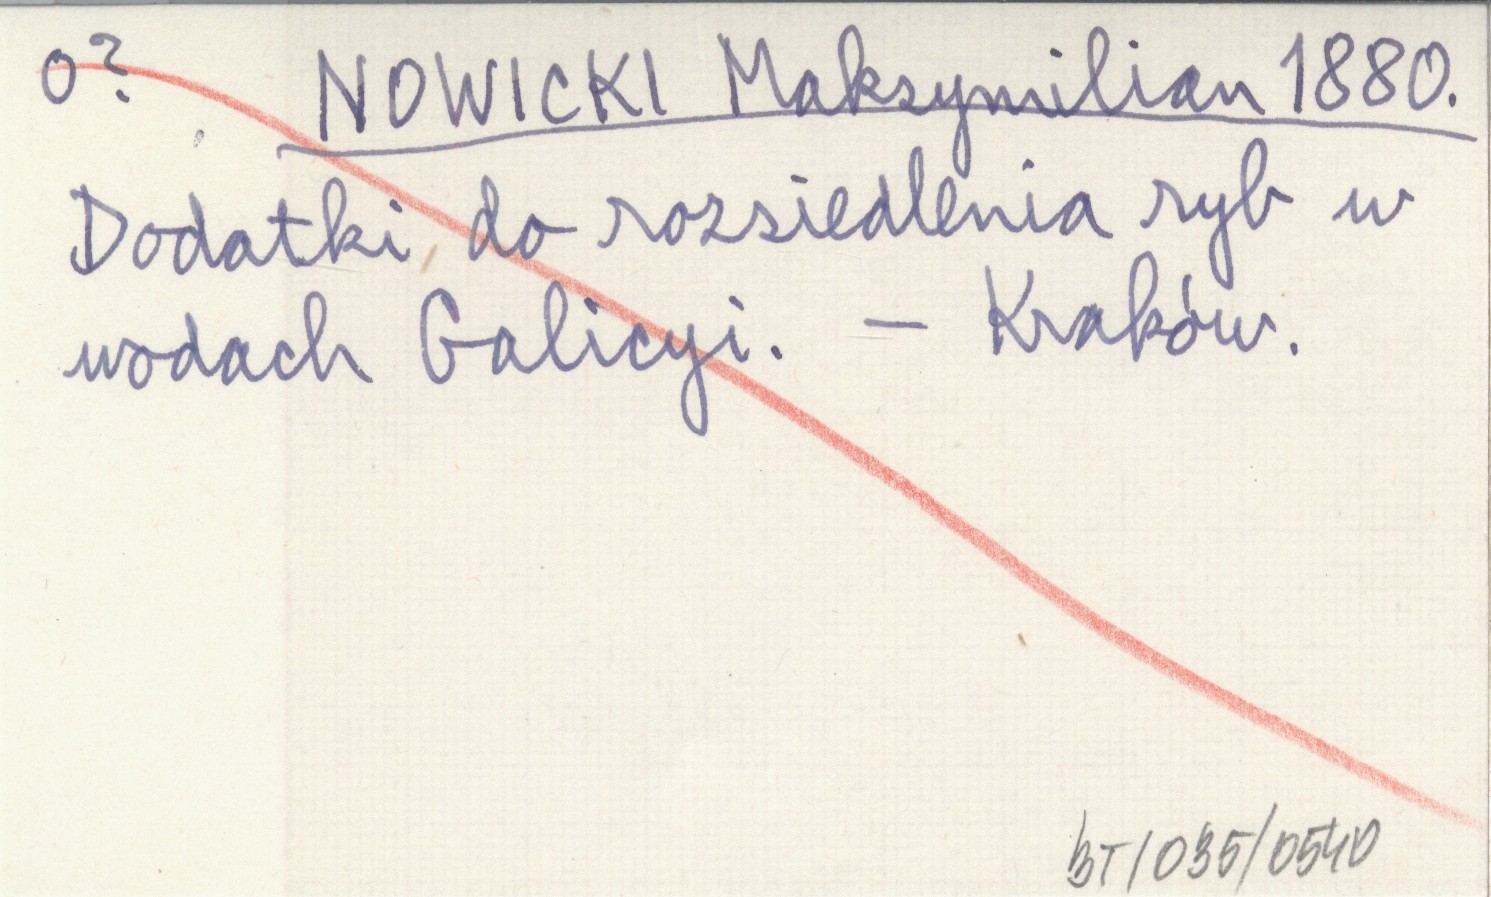 o? NOWICKI Maksymilian 1880.
Dodatki do rozsiedlenia ryb w
wodach Galicyi. – Kraków.
BT/035/0540